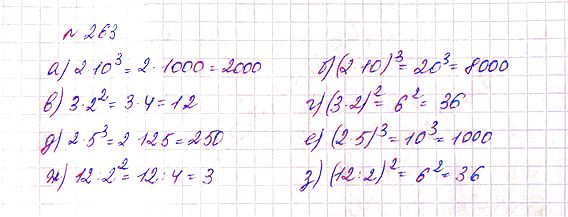 № 263
а) 2·10³ = 2·1000 = 2000 б) (2·10)³ = 20³ = 8000
в) 3·2² = 3·4 = 12 г) (3·2)² = 6² = 36
д) 2·5³ = 2·125 = 250 е) (2·5)³ = 10³ = 1000
ж) 12:2² = 12:4 = 3 з) (12:2)² = 6² = 36